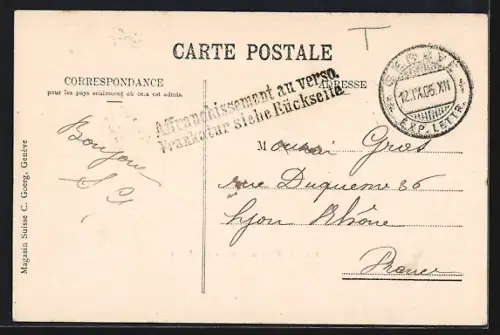 CARTE POSTALE
T
CORRESPONDANCE
pour les pays seulement où cela est admis.
ADRESSE
Affranchissement au verso.
Frankatur siehe Rückseite.
GENÈVE
12.IX.05.XII
EXP. LETTR.
Bonjour
M Gros
rue Duquesne 36
Lyon Rhône
France
Magasin Suisse C. Goerg, Genève